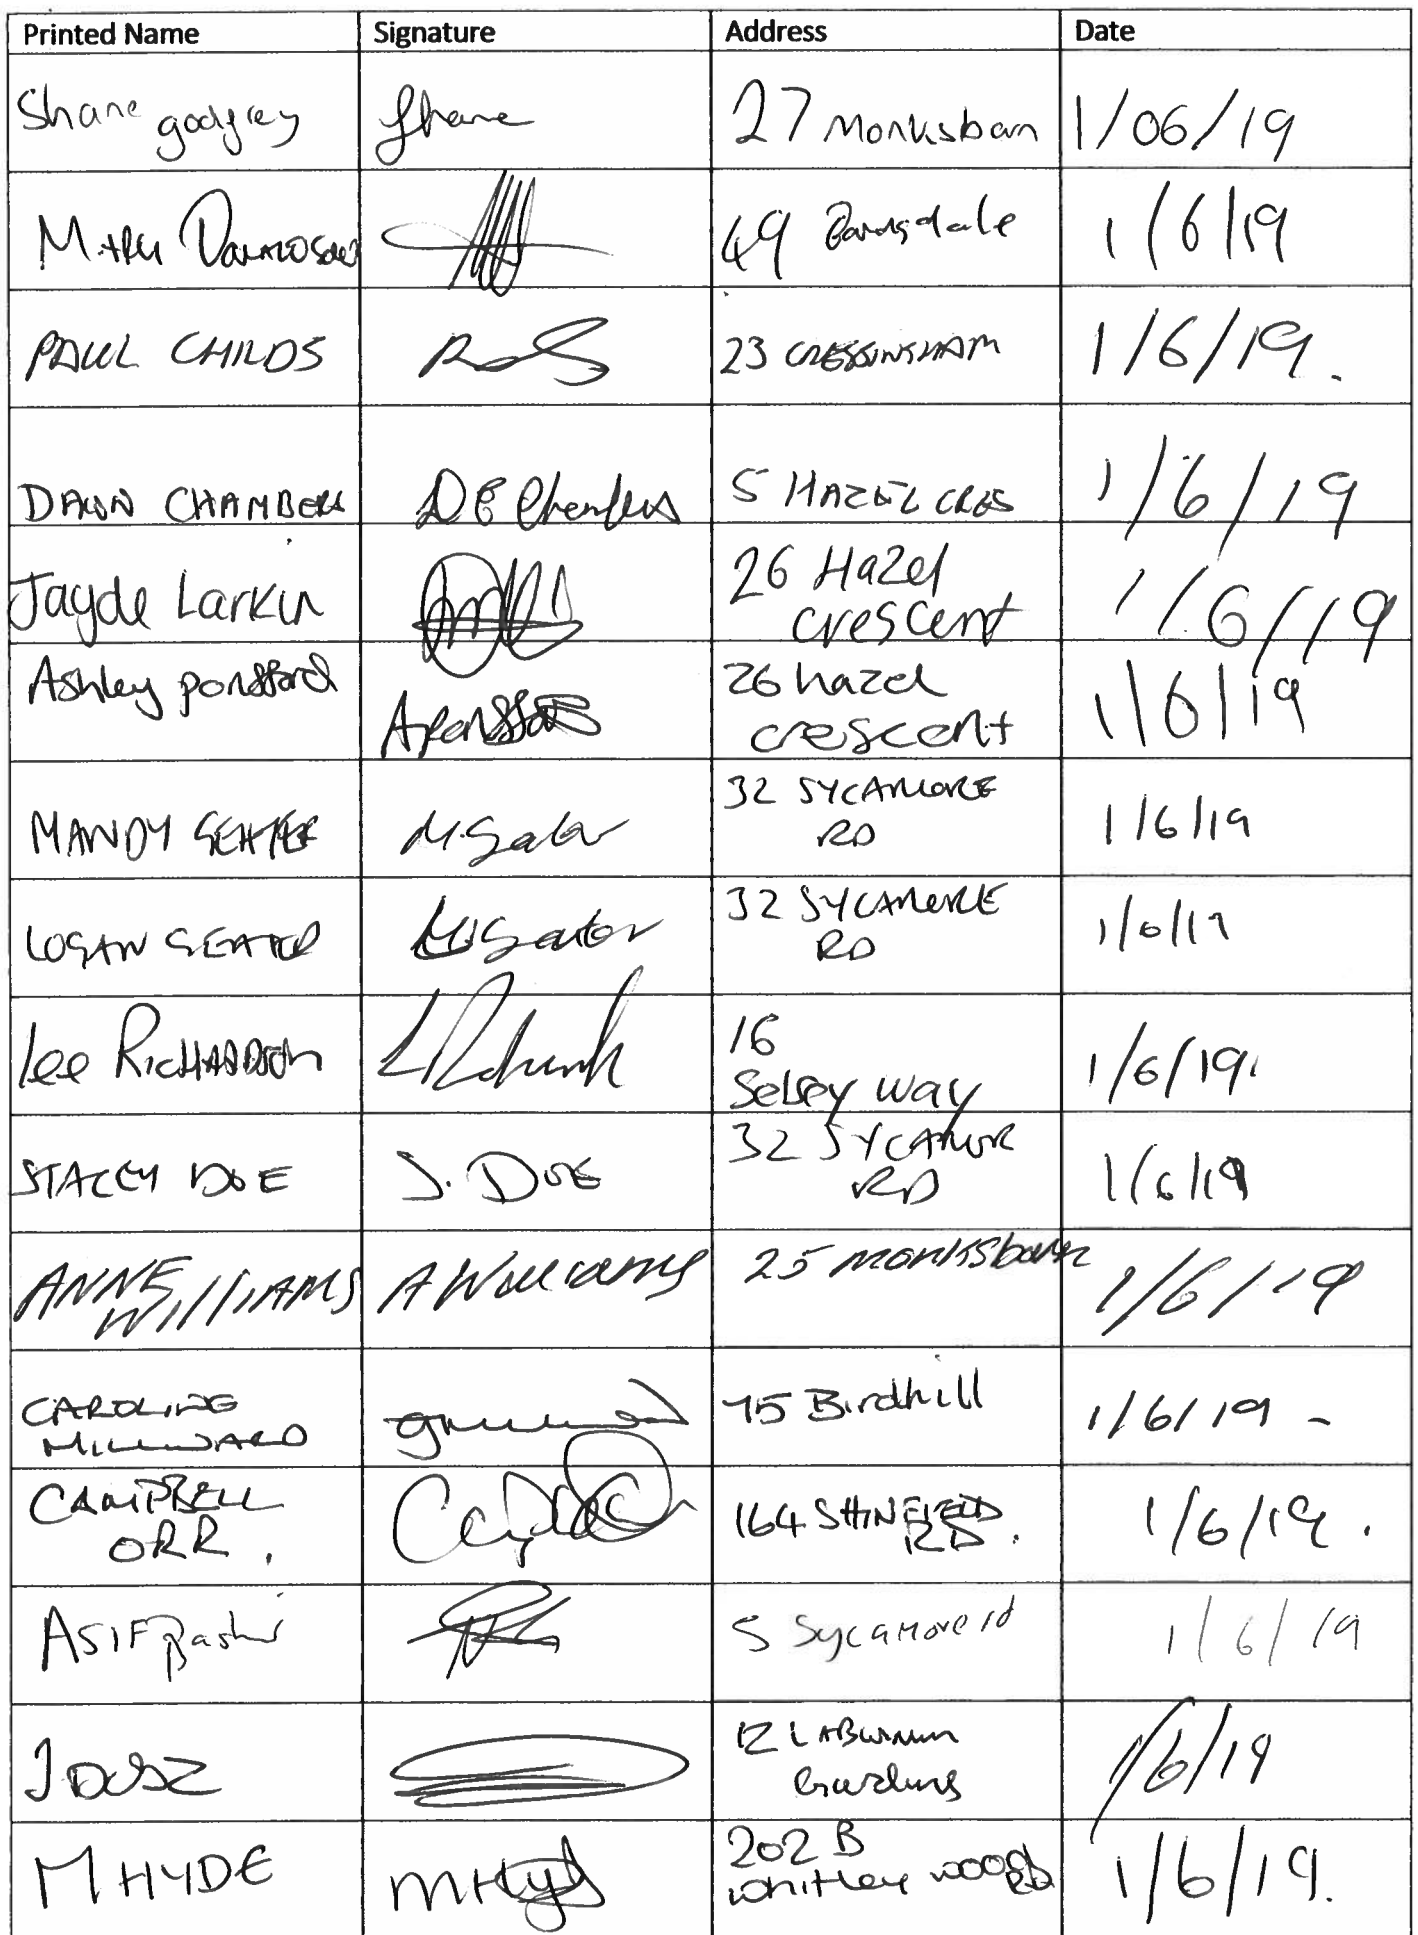 Printed Name Signature Address Date
Shane godfrey Shane 27 Monksbarn 1/06/19
49 1/6/19
PAUL CHILDS 23 CRESSINGHAM 1/6/19.
DAWN CHAMBERS D E Chambers 5 HAZEL CRES 1/6/19
Jayde Larkin 26 Hazel
crescent 1/6/19
Ashley ponsford 26 hazel
crescent 1/6/19
MANDY SEATER M. Seater 32 SYCAMORE
RD 1/6/19
LOGAN SEATER 32 SYCAMORE
RD 1/6/19
Lee RICHARDSON 16
Selsey way 1/6/19.
STACEY DOE S. DOE 32 SYCAMOR
RD 1/6/19
ANNE
WILLIAMS A Williams 25 monksbarn 1/6/19
CAROLINE
MILLWARD 75 Birdhill 1/6/19 -
CAMPBELL
ORR. 164 SHINFIELD
RD. 1/6/19.
ASIF Bashir 5 Sycamore rd 1/6/19
12 LABURNUM
Gardens 1/6/19
M HYDE M Hyde 202 B
whitley wood
RD 1/6/19.